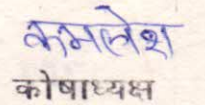 कमलेश
कोषाध्यक्ष